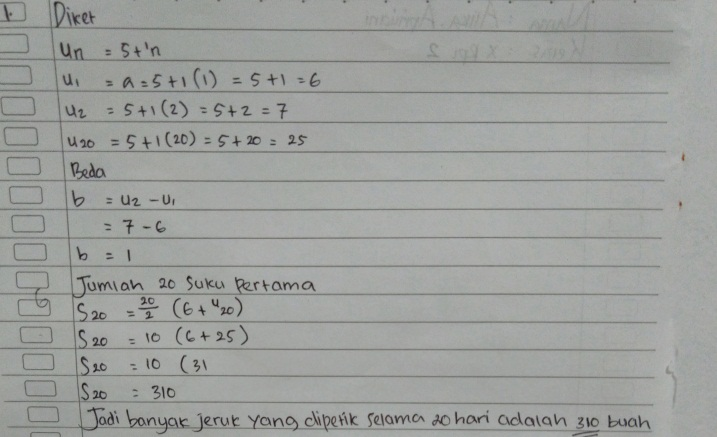 1. Diket
Un = 5+'n
U₁ = a = 5+1(1) = 5+1 = 6
U₂ = 5+1(2) = 5+2 = 7
U₂₀ = 5+1(20) = 5+20 = 25
Beda
b = U₂ - U₁
= 7 - 6
b = 1
Jumlah 20 suku pertama
S₂₀ = 20/2 (6+U₂₀)
S₂₀ = 10 (6+25)
S₂₀ = 10 (31
S₂₀ = 310
Jadi banyak jeruk yang dipetik selama 20 hari adalah 310 buah